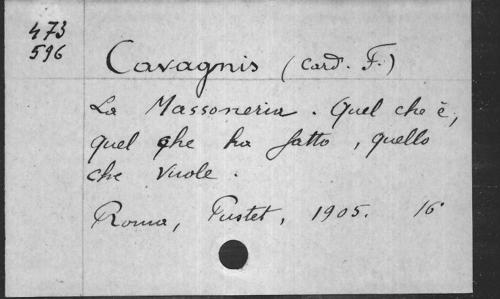 473
596
Cavagnis (Card. F.)
La Massoneria. Quel che è,
quel che ha fatto, quello
che vuole.
Roma, Pustet, 1905. 16°